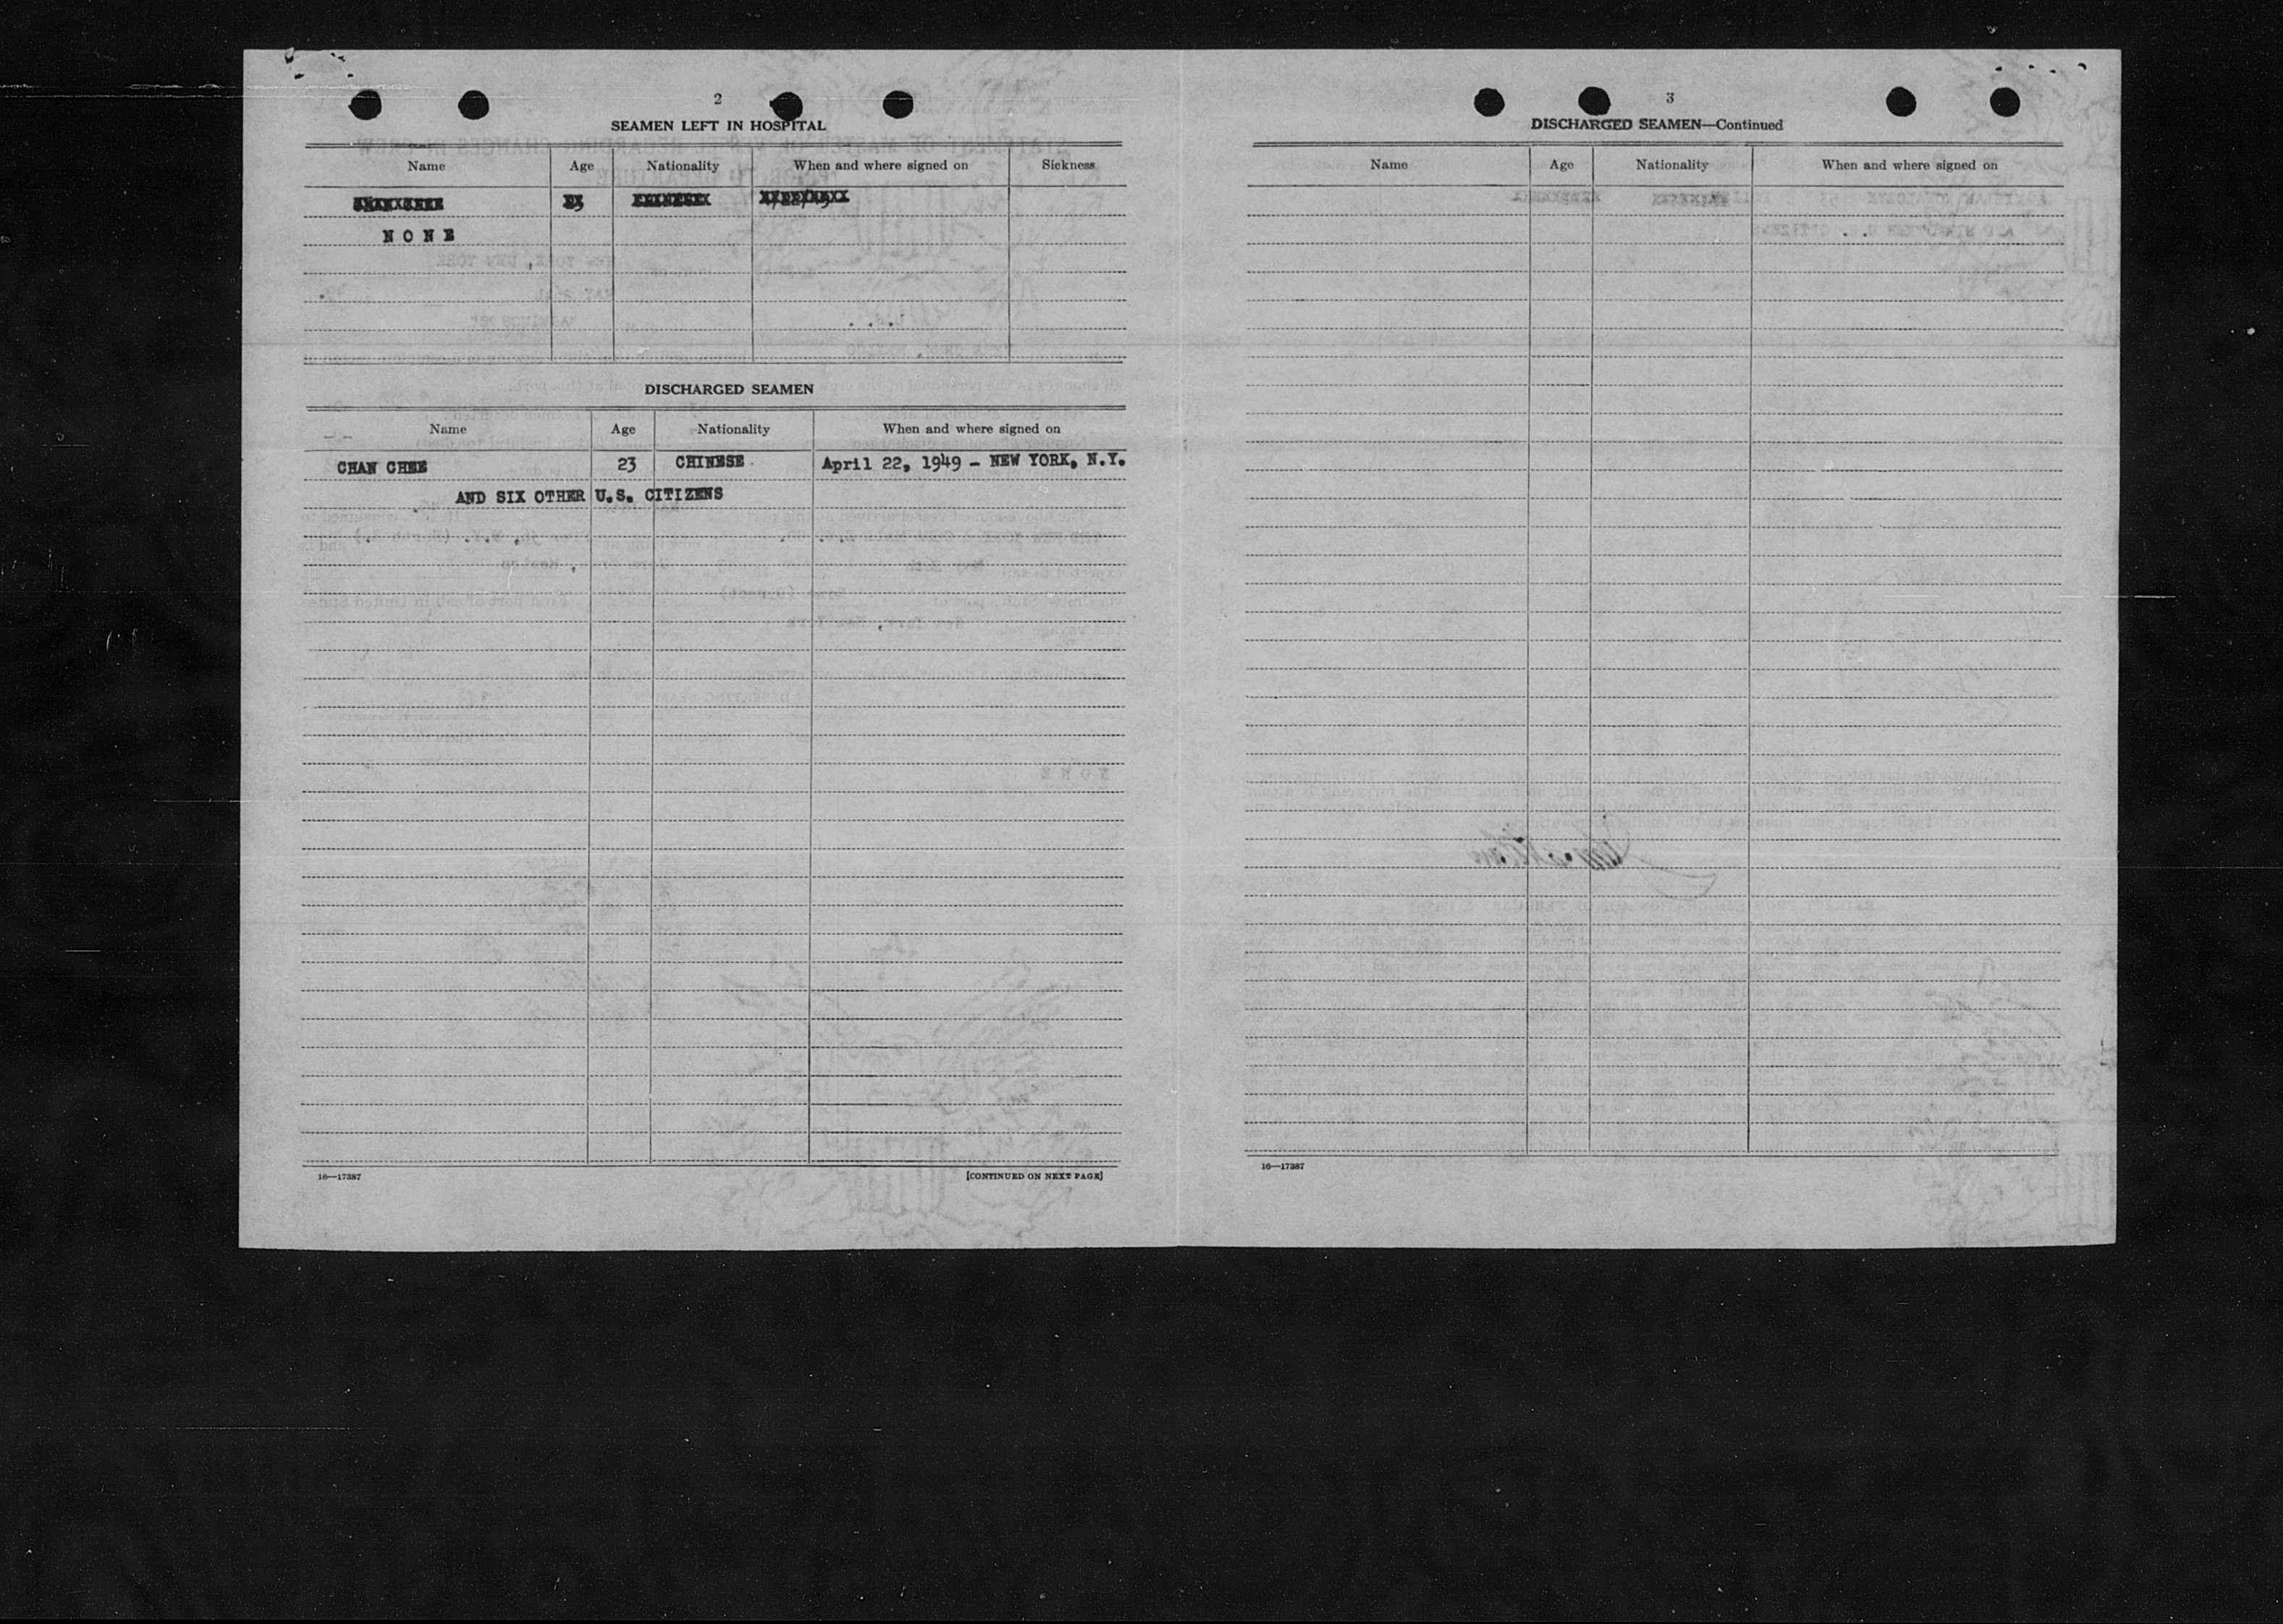 2
SEAMEN LEFT IN HOSPITAL
Name Age Nationality When and where signed on Sickness
NONE
DISCHARGED SEAMEN
Name Age Nationality When and where signed on
CHAN CHEE 23 CHINESE April 22, 1949 - NEW YORK, N.Y.
AND SIX OTHER U.S. CITIZENS
16—17387 [CONTINUED ON NEXT PAGE]
3
DISCHARGED SEAMEN—Continued
Name Age Nationality When and where signed on
16—17387